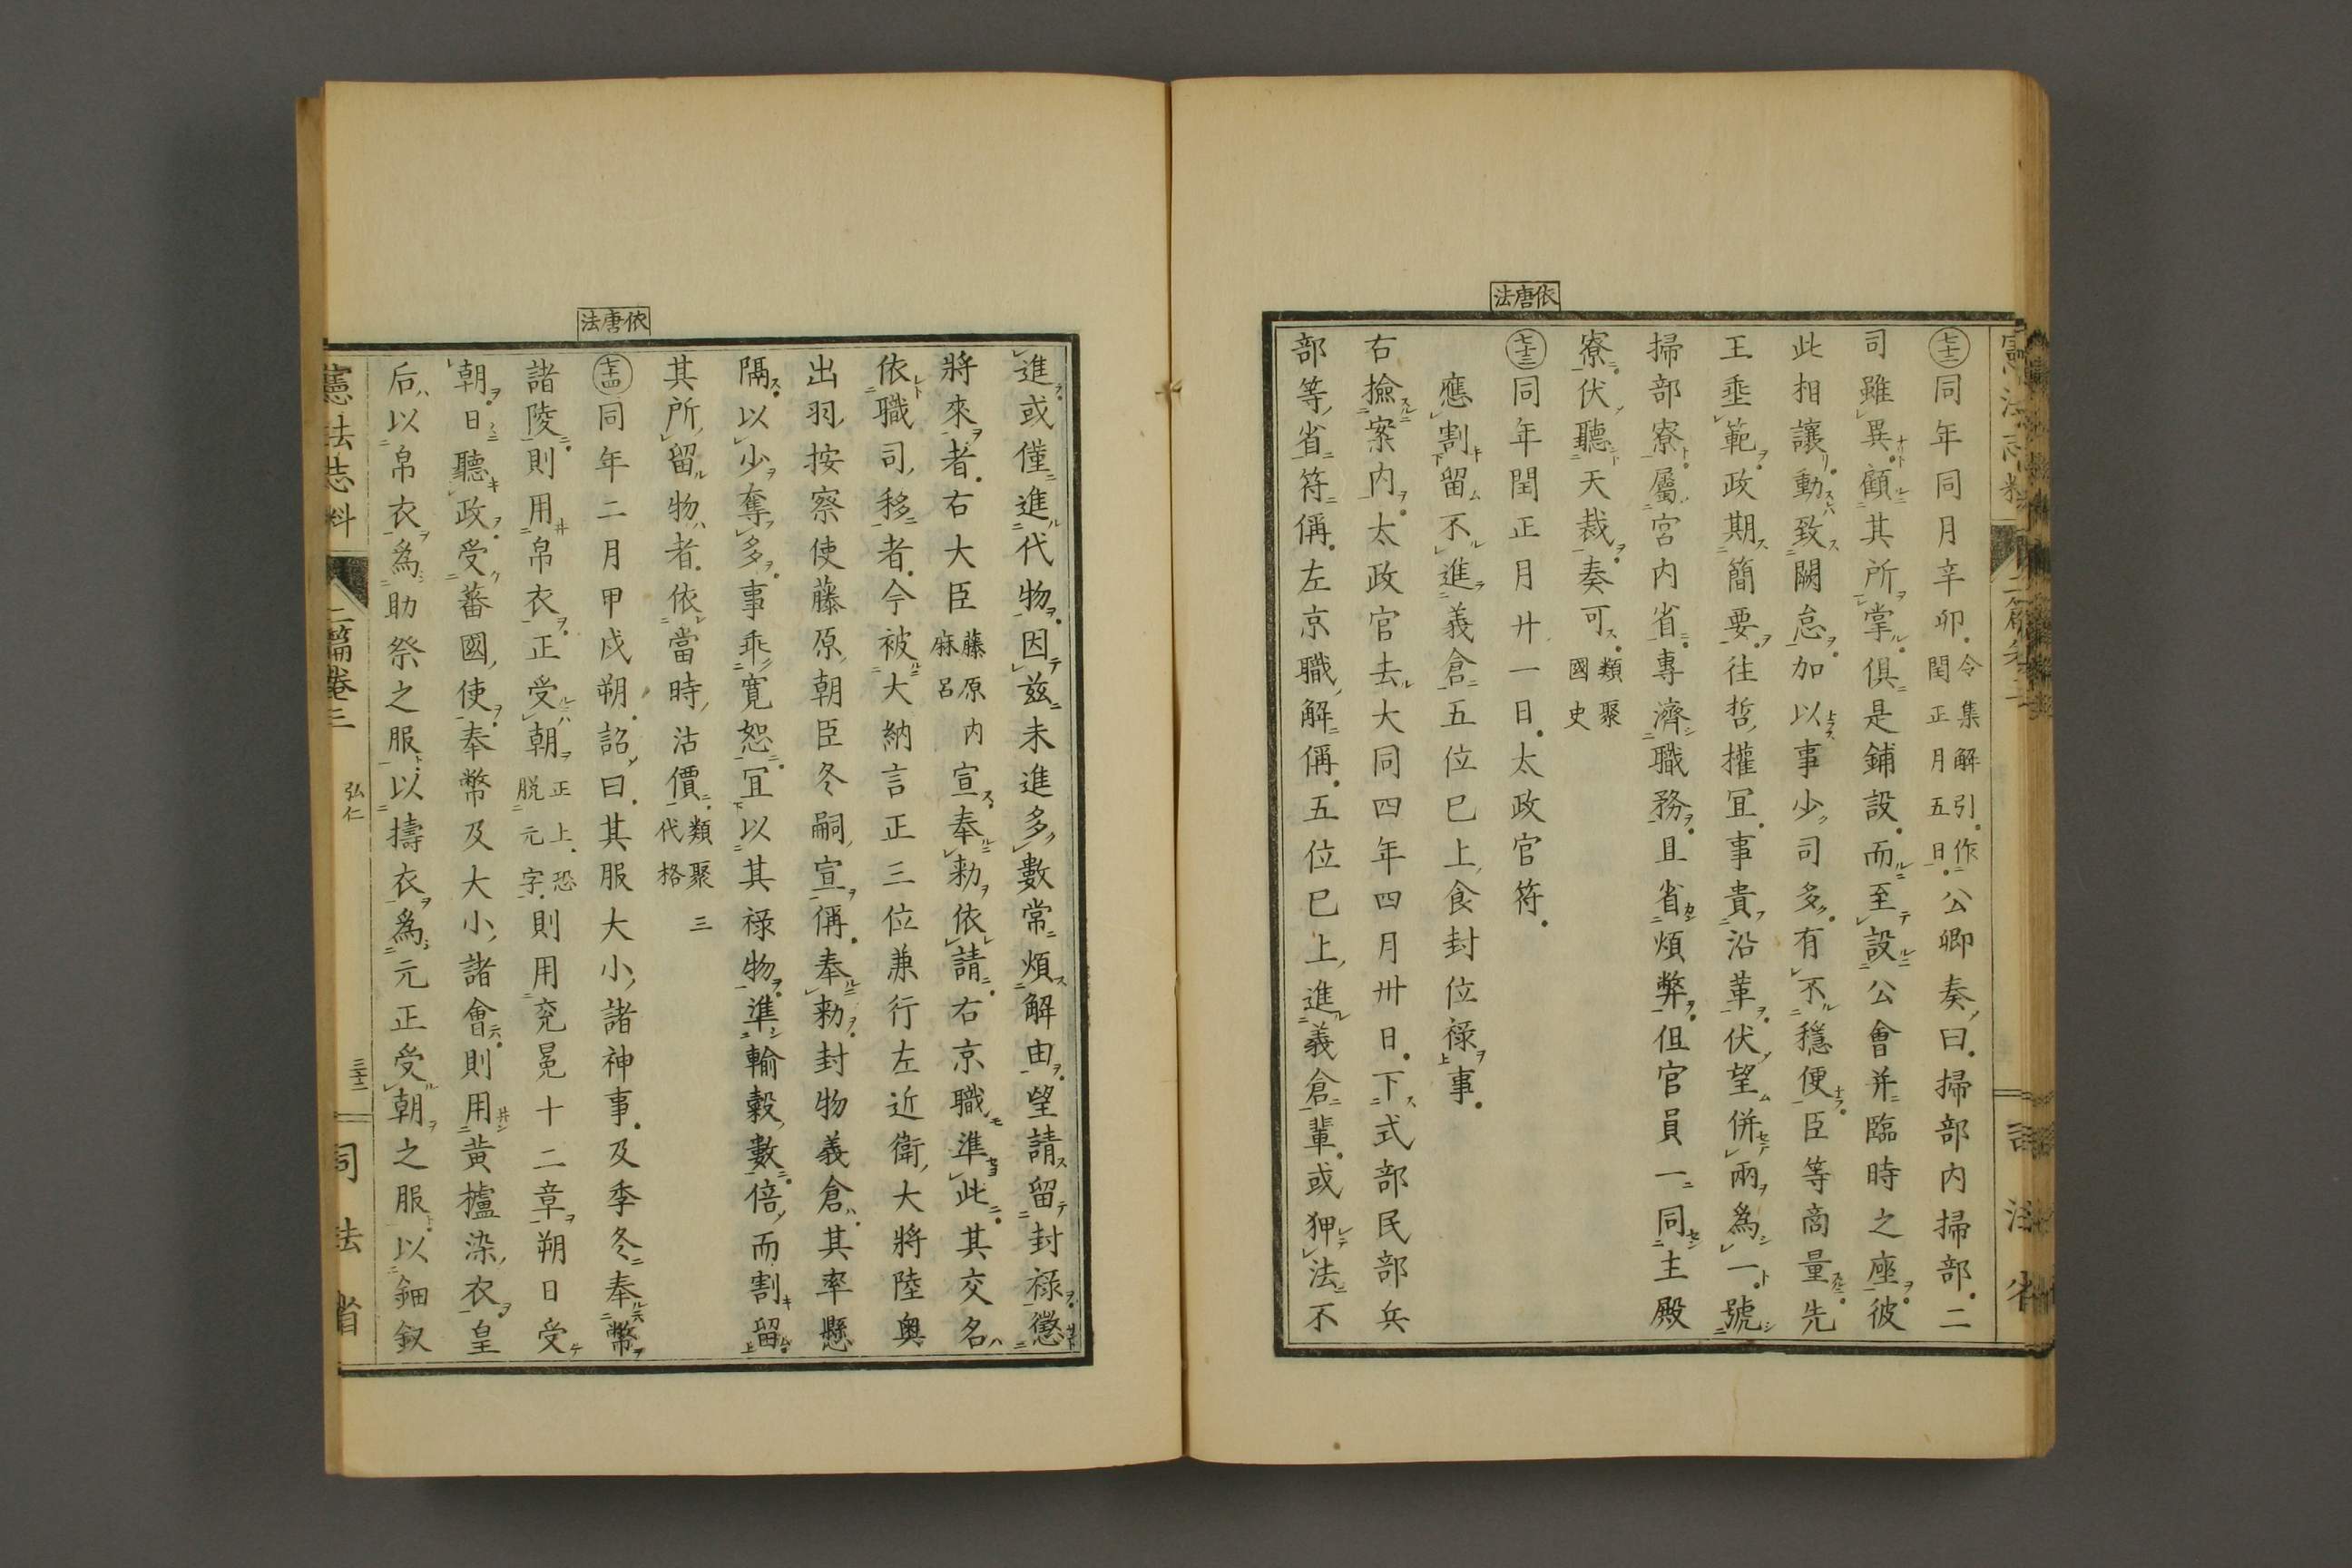 依唐法
㊆㊂同年同月辛卯令集解引作閏正月五日公卿奏曰掃部内掃部二
司雖異顧其所掌俱是鋪設而至設公會并臨時之座彼
此相讓動致闕怠加以事少司多有不穩便臣等商量先
王垂範政期簡要往哲權冝事貴沿革伏望併兩爲一號
掃部寮屬宮内省專濟職務且省煩弊但官員一同主殿
寮伏聽天裁奏可類聚國史
七十三同年閏正月廿一日太政官符
應割留不進義倉五位已上食封位禄事
右撿案内太政官去大同四年四月卅日下式部民部兵
部等省符偁左京職解偁五位已上進義倉輩或狎法不
依唐法
進或僅進代物因茲未進多數常煩解由望請留封禄懲
將來者右大臣藤原内麻呂宣奉勅依請右京職準此其交名
依職司移者今被大納言正三位兼行左近衛大將陸奥
出羽按察使藤原朝臣冬嗣宣偁奉勅封物義倉其率懸
隔以少奪多事乖寛恕冝以其禄物準輸穀數倍而割留
其所留物者依當時沽價類聚三代格
七十四同年二月甲戌朔詔曰其服大小諸神事及季冬奉幣
諸陵則用帛衣正受朝正上恐脱元字則用兖冕十二章朔日受
朝日聽政受蕃國使奉幣及大小諸會則用黄櫨染衣皇
后以帛衣爲助祭之服以擣衣爲元正受朝之服以鈿釵
憲法志料
二篇卷三
弘仁
三十二
司法省